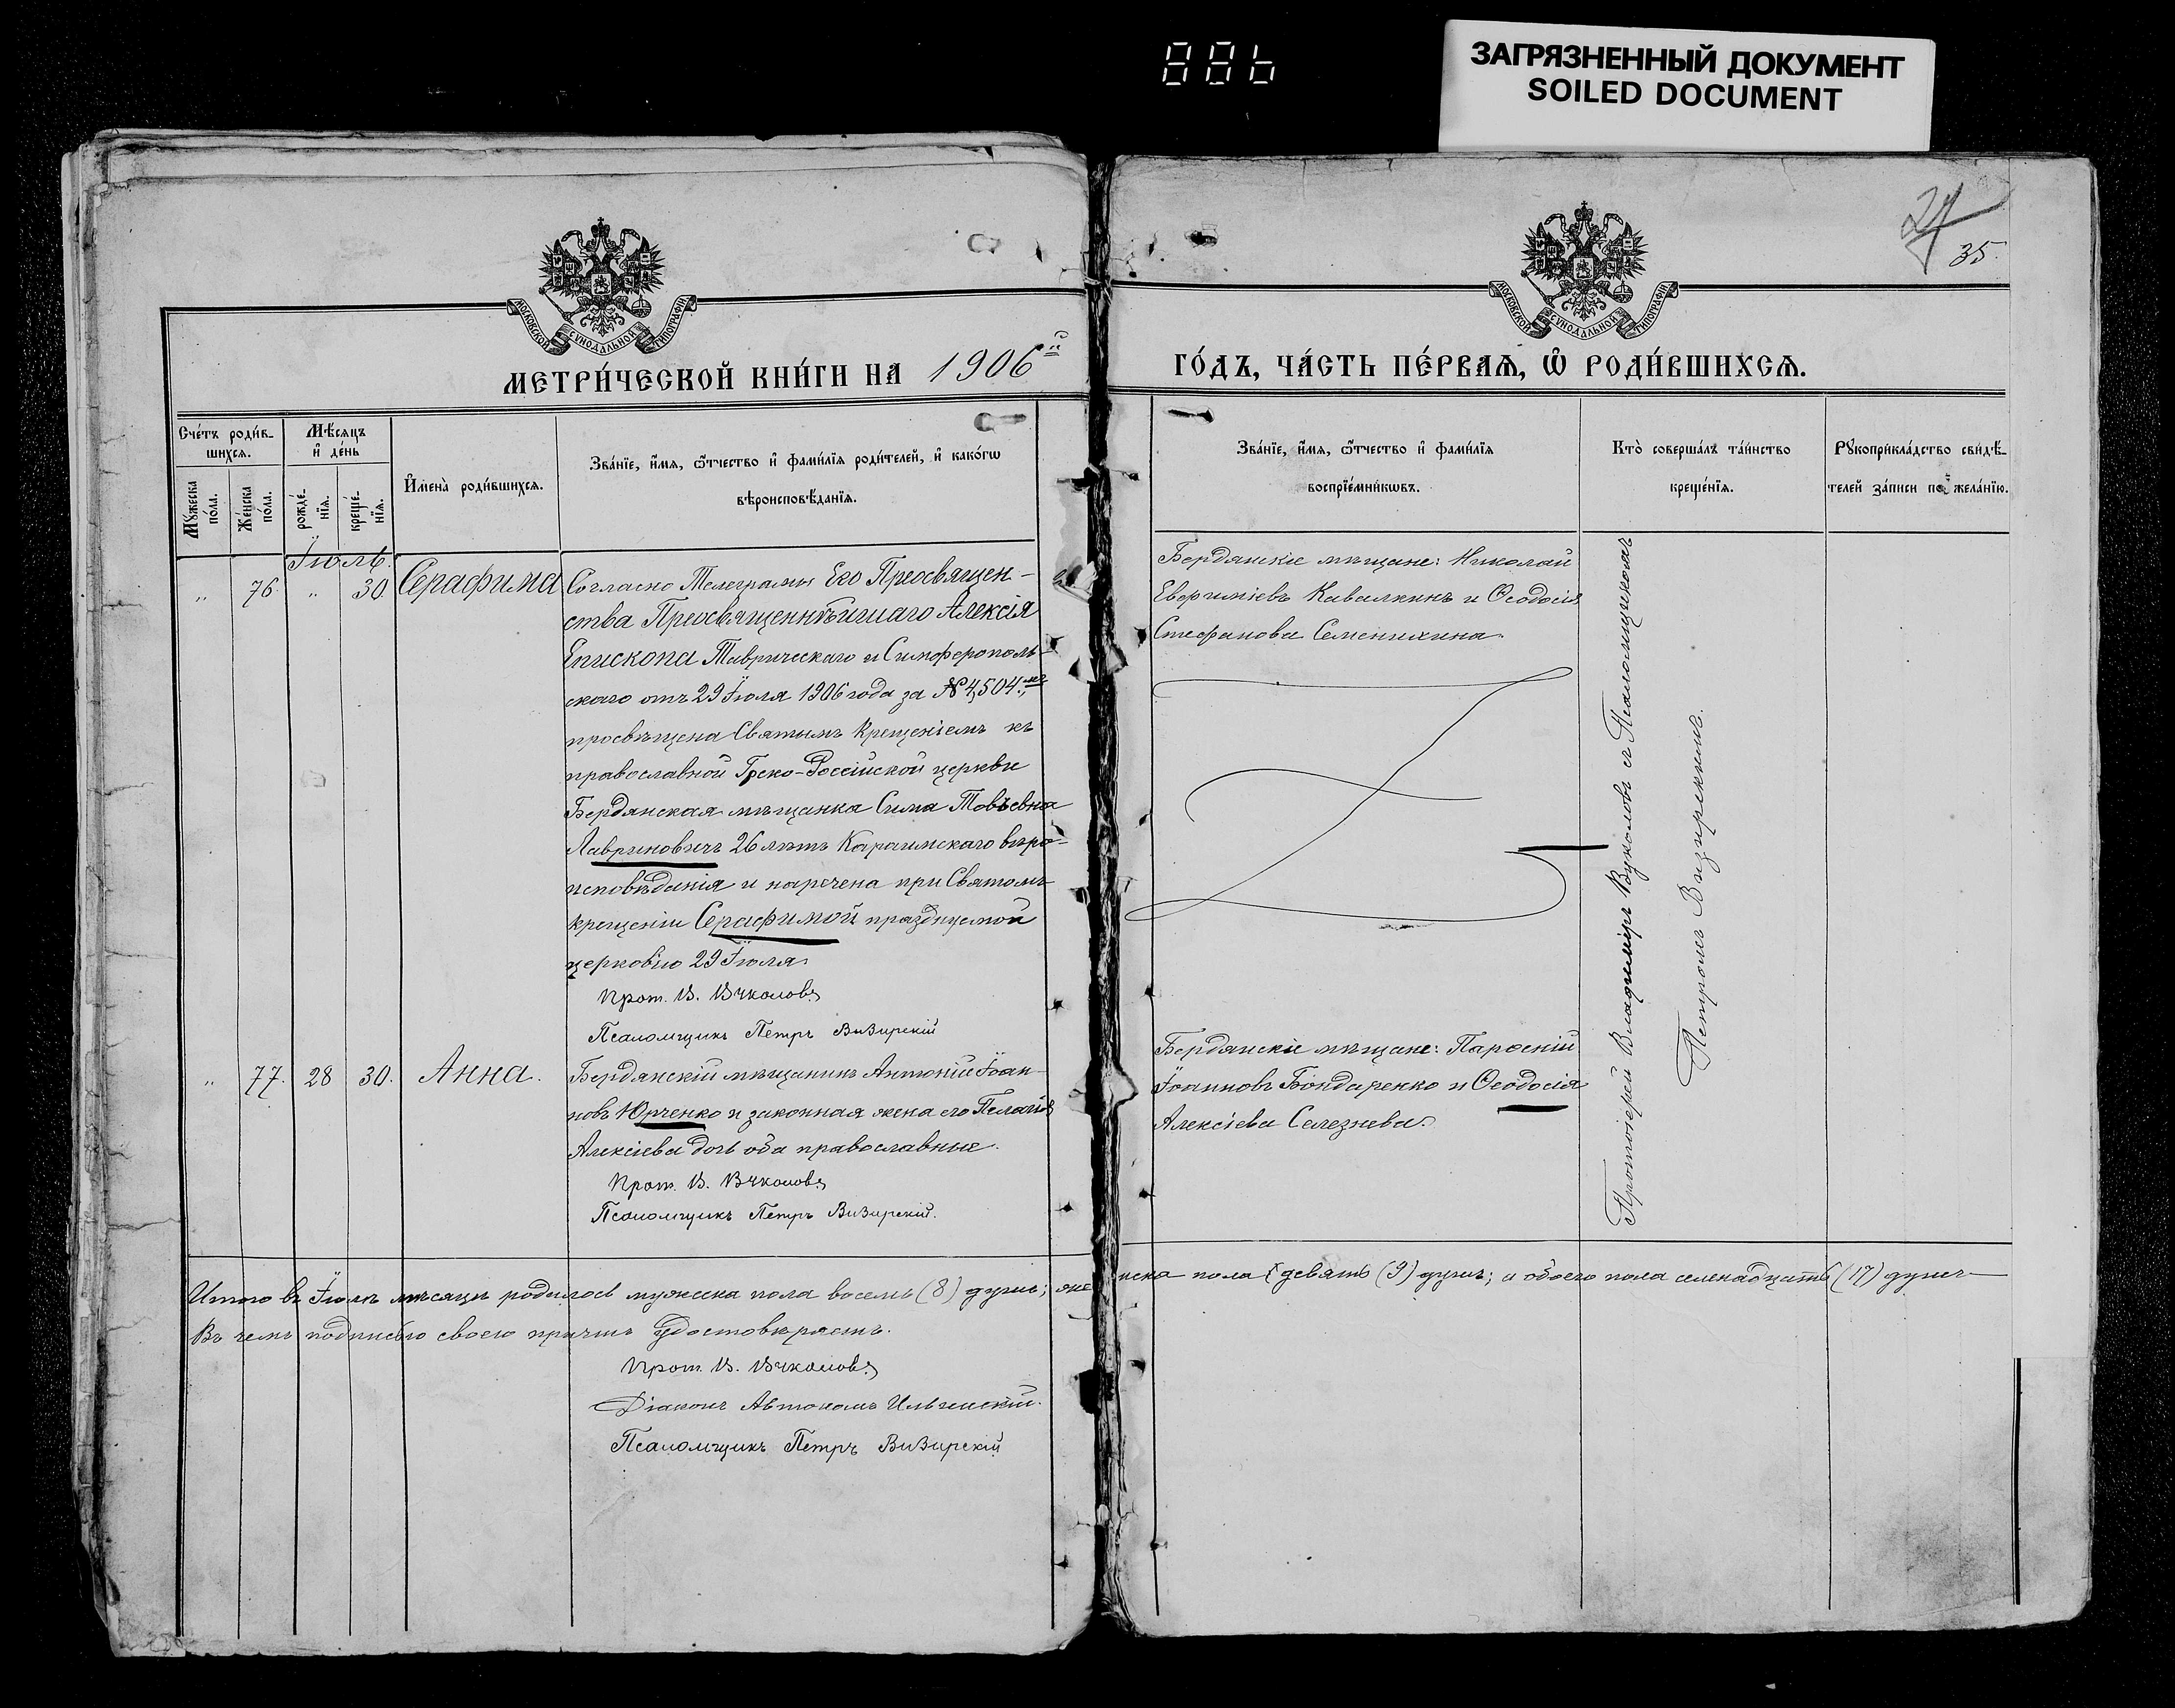 886
ЗАГРЯЗНЕННЫЙ ДОКУМЕНТ
SOILED DOCUMENT
35.
МОСКОВСКОЙ СѴНОДАЛЬНОЙ ТИПОГРАФІИ
МОСКОВСКОЙ СѴНОДАЛЬНОЙ ТИПОГРАФІИ
МЕТРИ́ЧЕСКОЙ КНИ́ГИ НА 1906ый
ГО́ДЪ, ЧА́СТЬ ПЕ́РВАѦ, Ѡ҆ РОДИ́ВШИХСѦ.
Сче́тъ роди́в-
шихсѧ.
Мꙋ́жеска по́ла.
Же́нска по́ла.
Мѣ́сяцъ
и҆ де́нь
рожде́-
нїѧ.
креще́-
нїѧ.
И҆мена̀ роди́вшихсѧ.
Зва́нїе, и҆́мѧ, ѻ҆́тчество и҆ фами́лїѧ роди́телей, и҆ како́гѡ
вѣроисповѣ́данїѧ.
Зва́нїе, и҆́мѧ, ѻ҆́тчество и҆ фами́лїѧ
воспрїе́мникѡвъ.
Кто̀ соверша́лъ та́инство
креще́нїѧ.
Рꙋкоприкла́дство свидѣ́-
телей за́писи по жела́нїю.
Іюль.
„ 76. „ 30 Серафима
Согласно Телеграмы Его Преосвящен-
ства Преосвященнѣйшаго Алексія
Епископа Таврическаго и Симферополь-
скаго отъ 29 Іюля 1906 года за № 4,504.мъ
просвѣщена Святымъ Крещеніемъ къ
православной Греко-Россійской церкви
Бердянская мѣщанка Сима Товіевна
Лавриновичъ 26 лѣтъ Караимскаго вѣро-
исповѣданія и наречена при Святомъ
крещеніи Серафимой празднуемой
церковію 29 Іюля.
Прот. В. Вуколовъ
Псаломщикъ Петръ Визирскій
Бердянскіе мѣщане: Николай
Евфиміевъ Кавалкинъ и Ѳеодосія
Стефанова Семенихина.
„ 77. 28 30. Анна.
Бердянскій мѣщанинъ Антоній Іоан-
новъ Юрченко и законная жена его Пелагія
Алексіева дочь оба православные.
Прот. В. Вуколовъ
Псаломщикъ Петръ Визирскій.
Бердянскіе мѣщане: Парѳеній
Іоанновъ Бондаренко и Ѳеодосія
Алексіева Селезнева.
Протоіерей Владиміръ Вуколовъ съ Псаломщикомъ
Петромъ Визирскимъ.
Итого въ Іюлѣ мѣсяцѣ родилось мужеска пола восемь (8) душъ; женска пола девять (9) душъ; а обоего пола семнадцать (17) душъ
Въ чемъ подписью своею причтъ удостовѣряетъ.
Прот. В. Вуколовъ
Діаконъ Автономъ Ильчинскій.
Псаломщикъ Петръ Визирскій